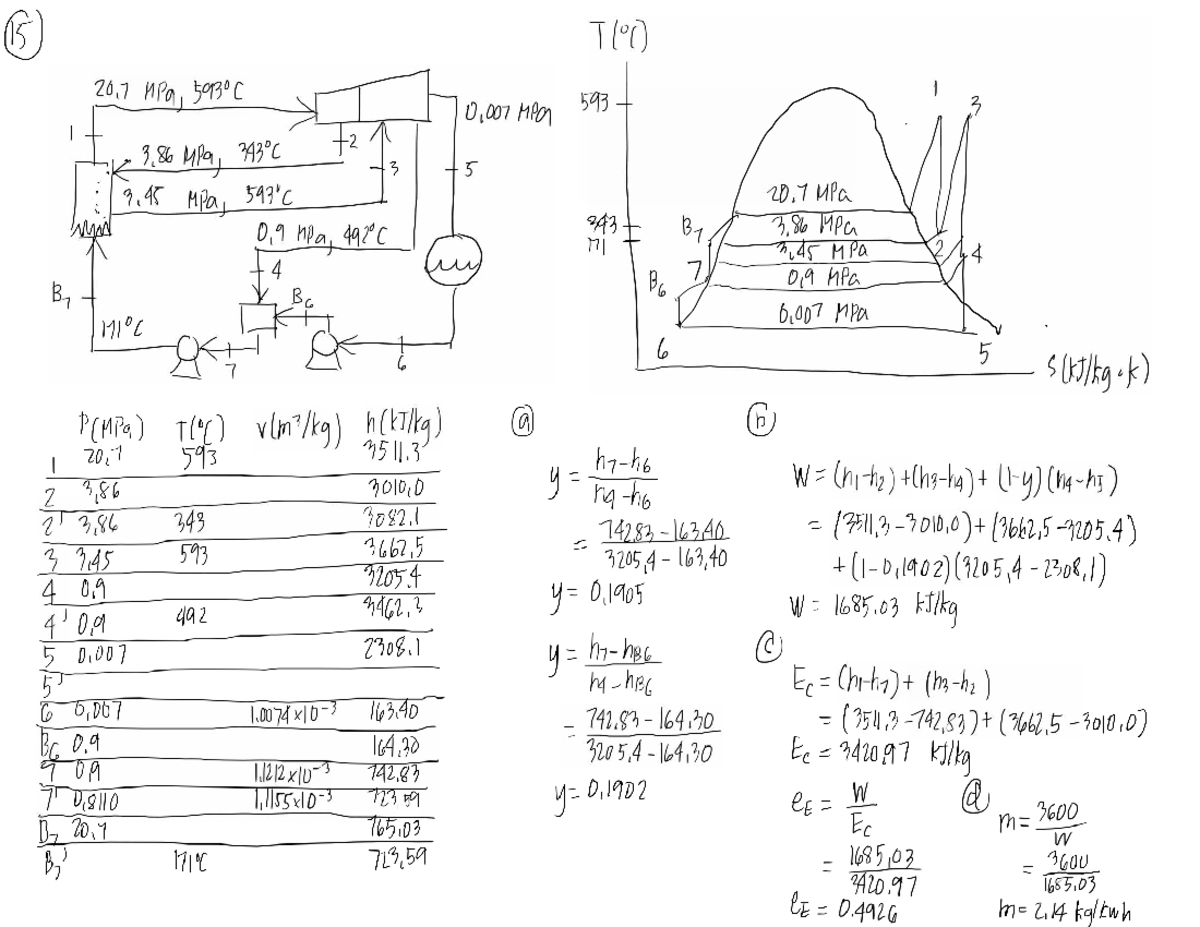 15
20.7 MPa, 593°C
0,007 MPa
1
2
3,86 MPa, 343°C
3
5
3,45 MPa, 593°C
0,9 MPa, 492°C
4
B6
B7
171°C
7
6
T(°C)
593
1
3
20.7 MPa
343
B7
3,86 MPa
171
3,45 MPa
2
4
7
0,9 MPa
B6
0,007 MPa
6
5
S(kJ/kg·K)
P(MPa) T(°C) v(m³/kg) h(kJ/kg)
1 20,7 593 3511.3
2 3,86 3010,0
2' 3,86 343 3082.1
3 3,45 593 3662,5
4 0,9 3205.4
4' 0,9 492 3462,3
5 0,007 2308.1
5'
6 0,007 1.0074x10-³ 163.40
B6 0.9 164,30
7 0,9 1,1212x10-³ 742,83
7' 0,8110 1,1155x10-³ 723,59
B7 20,7 765,03
B7' 171°C 723,59
a
y = h7-h6 / h4-h6
= 742.83-163,40 / 3205,4-163,40
y= 0,1905
y = h7-hB6 / h4-hB6
= 742.83-164.30 / 3205.4-164,30
y= 0,1902
b
W = (h1-h2)+(h3-h4)+(1-y)(h4-h5)
= (3511,3-3010,0)+(3662,5-3205,4)
+(1-0,1902)(3205,4-2308,1)
W = 1685,03 kJ/kg
c
Ec = (h1-h7)+(h3-h2)
= (3511,3-742,83)+(3662,5-3010,0)
Ec = 3420.97 kJ/kg
eE = W / Ec
= 1685,03 / 3420.97
eE = 0.4926
d
m = 3600 / W
= 3600 / 1685,03
m= 2,14 kg/kwh